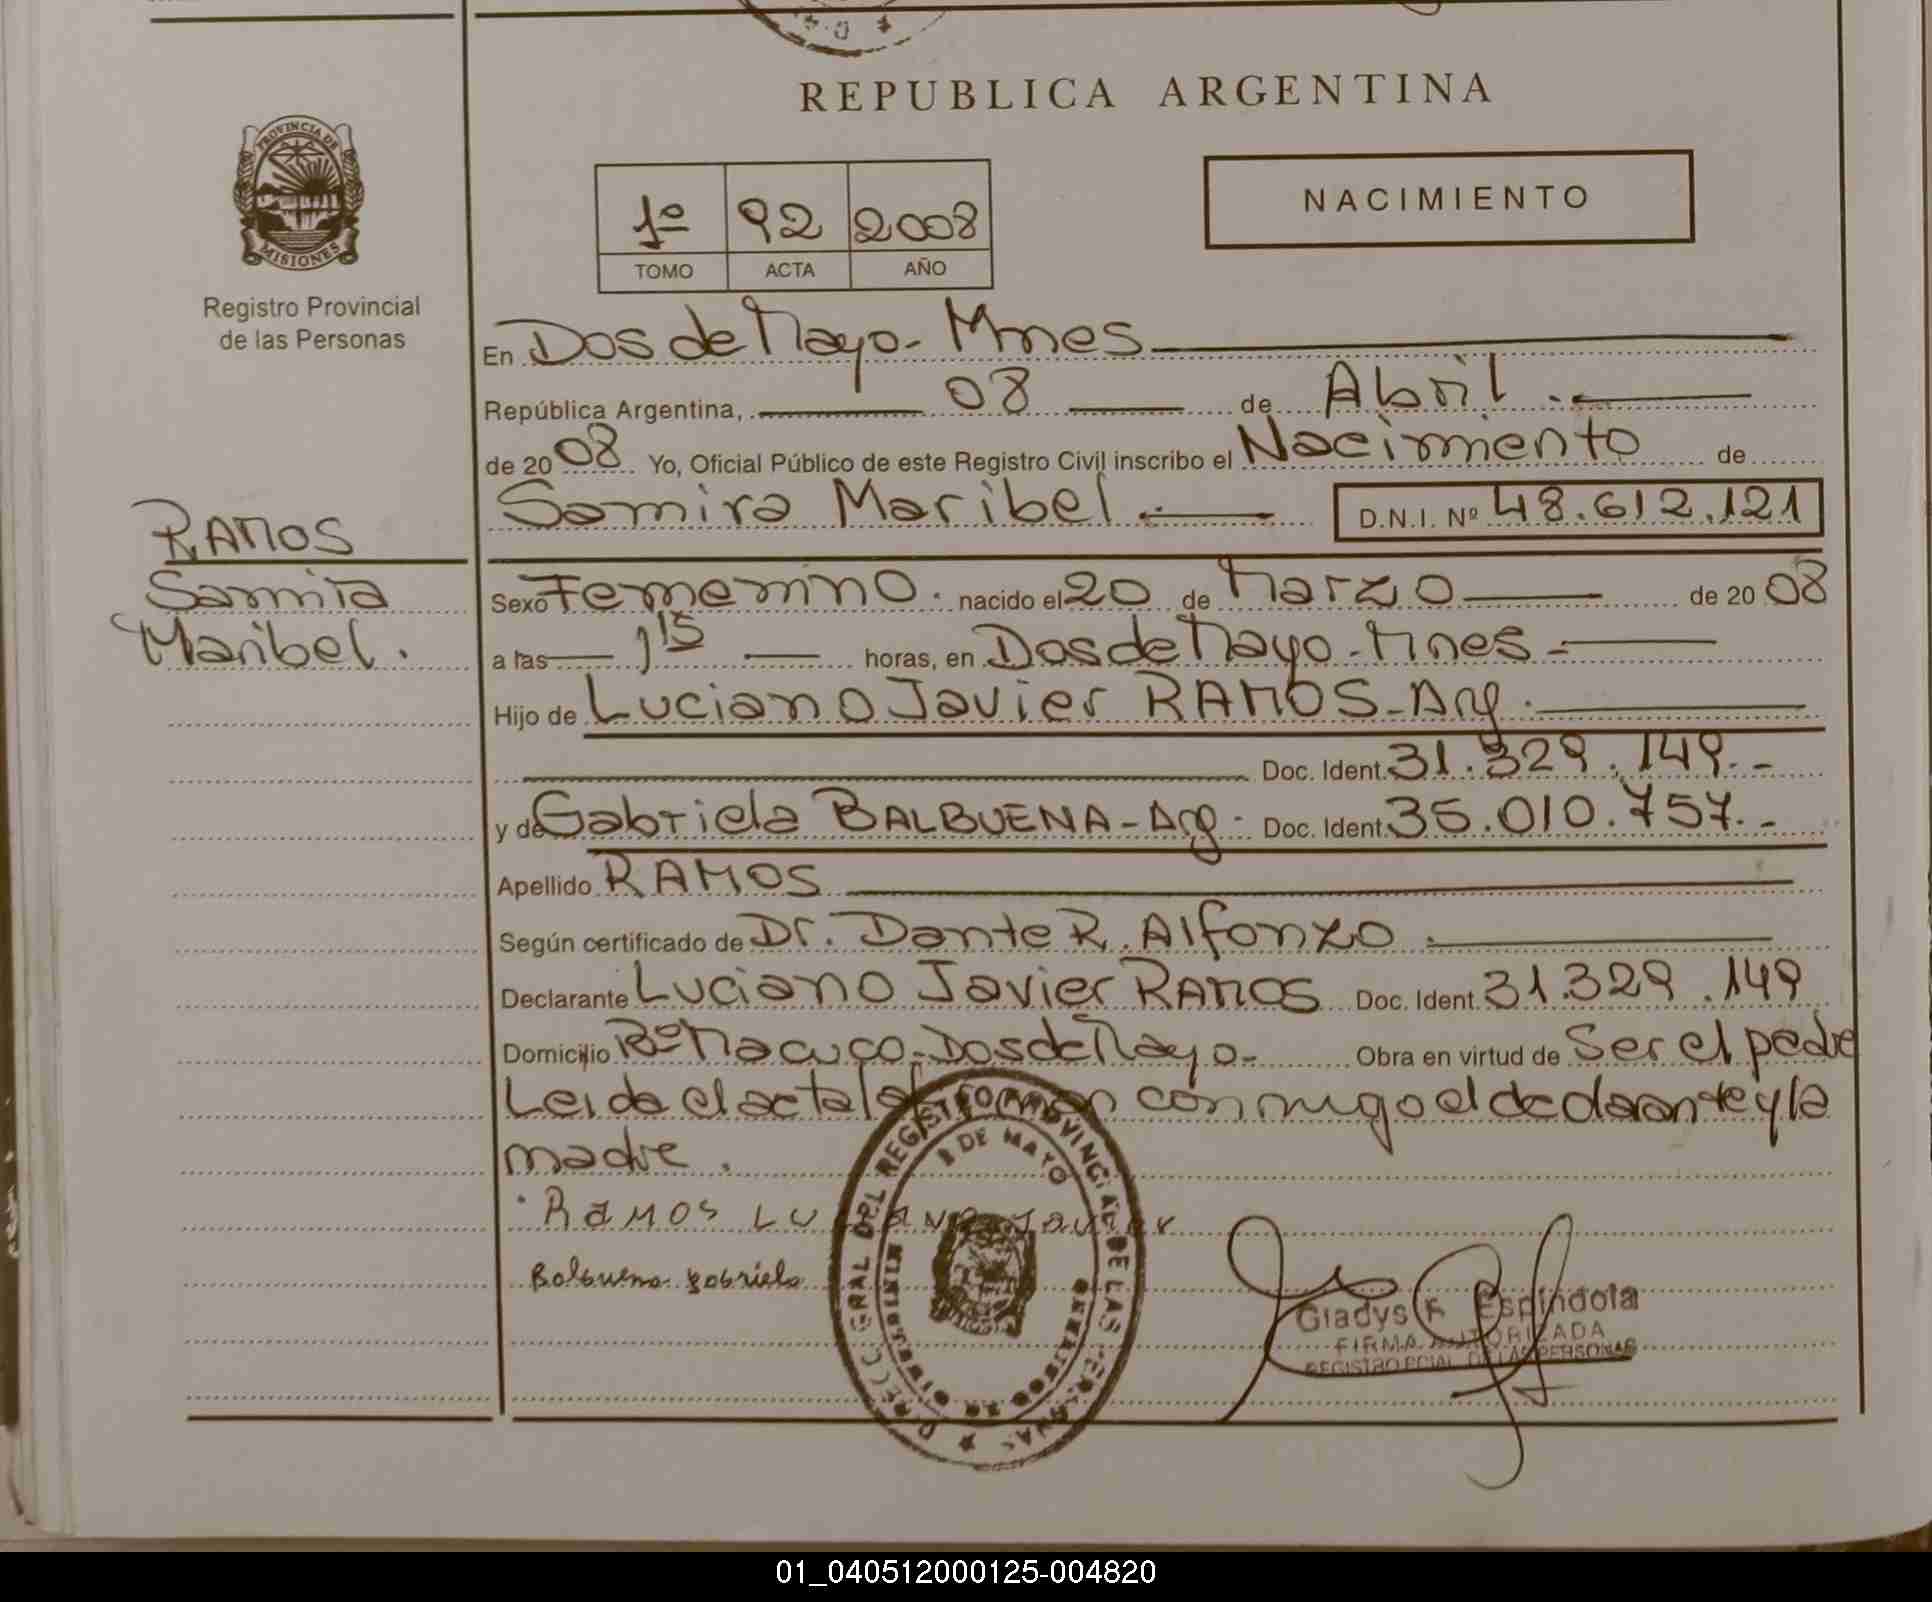 REPUBLICA ARGENTINA
PROVINCIA DE
MISIONES
Registro Provincial
de las Personas
1º 92 2008
TOMO ACTA AÑO
NACIMIENTO
En Dos de Mayo - Mnes
República Argentina, 08 de Abril .
de 20 08 Yo, Oficial Público de este Registro Civil inscribo el Nacimiento de
Samira Maribel . D.N.I. Nº 48.612.121
RAMOS
Samira
Maribel .
Sexo Femenino . nacido el 20 de Marzo de 20 08
a las 1 15 horas, en Dos de Mayo - Mnes -
Hijo de Luciano Javier RAMOS - Arg .
Doc. Ident. 31.329.149. -
y de Gabriela BALBUENA - Arg - Doc. Ident. 35.010.757. -
Apellido RAMOS
Según certificado de Dr. Dante R. Alfonzo .
Declarante Luciano Javier RAMOS Doc. Ident. 31.329.149
Domicilio Bº Macuco - Dos de Mayo - Obra en virtud de Ser el padre
Leida el acta la conmigo el declarante y la
madre .
RAMOS LUCIANO Javier
Balbuena gabriela
REGISTRO PROVINCIAL DE LAS
DE MAYO
Gladys F. Espíndola
FIRMA AUTORIZADA
REGISTRO PCIAL. DE LAS PERSONAS
01_040512000125-004820